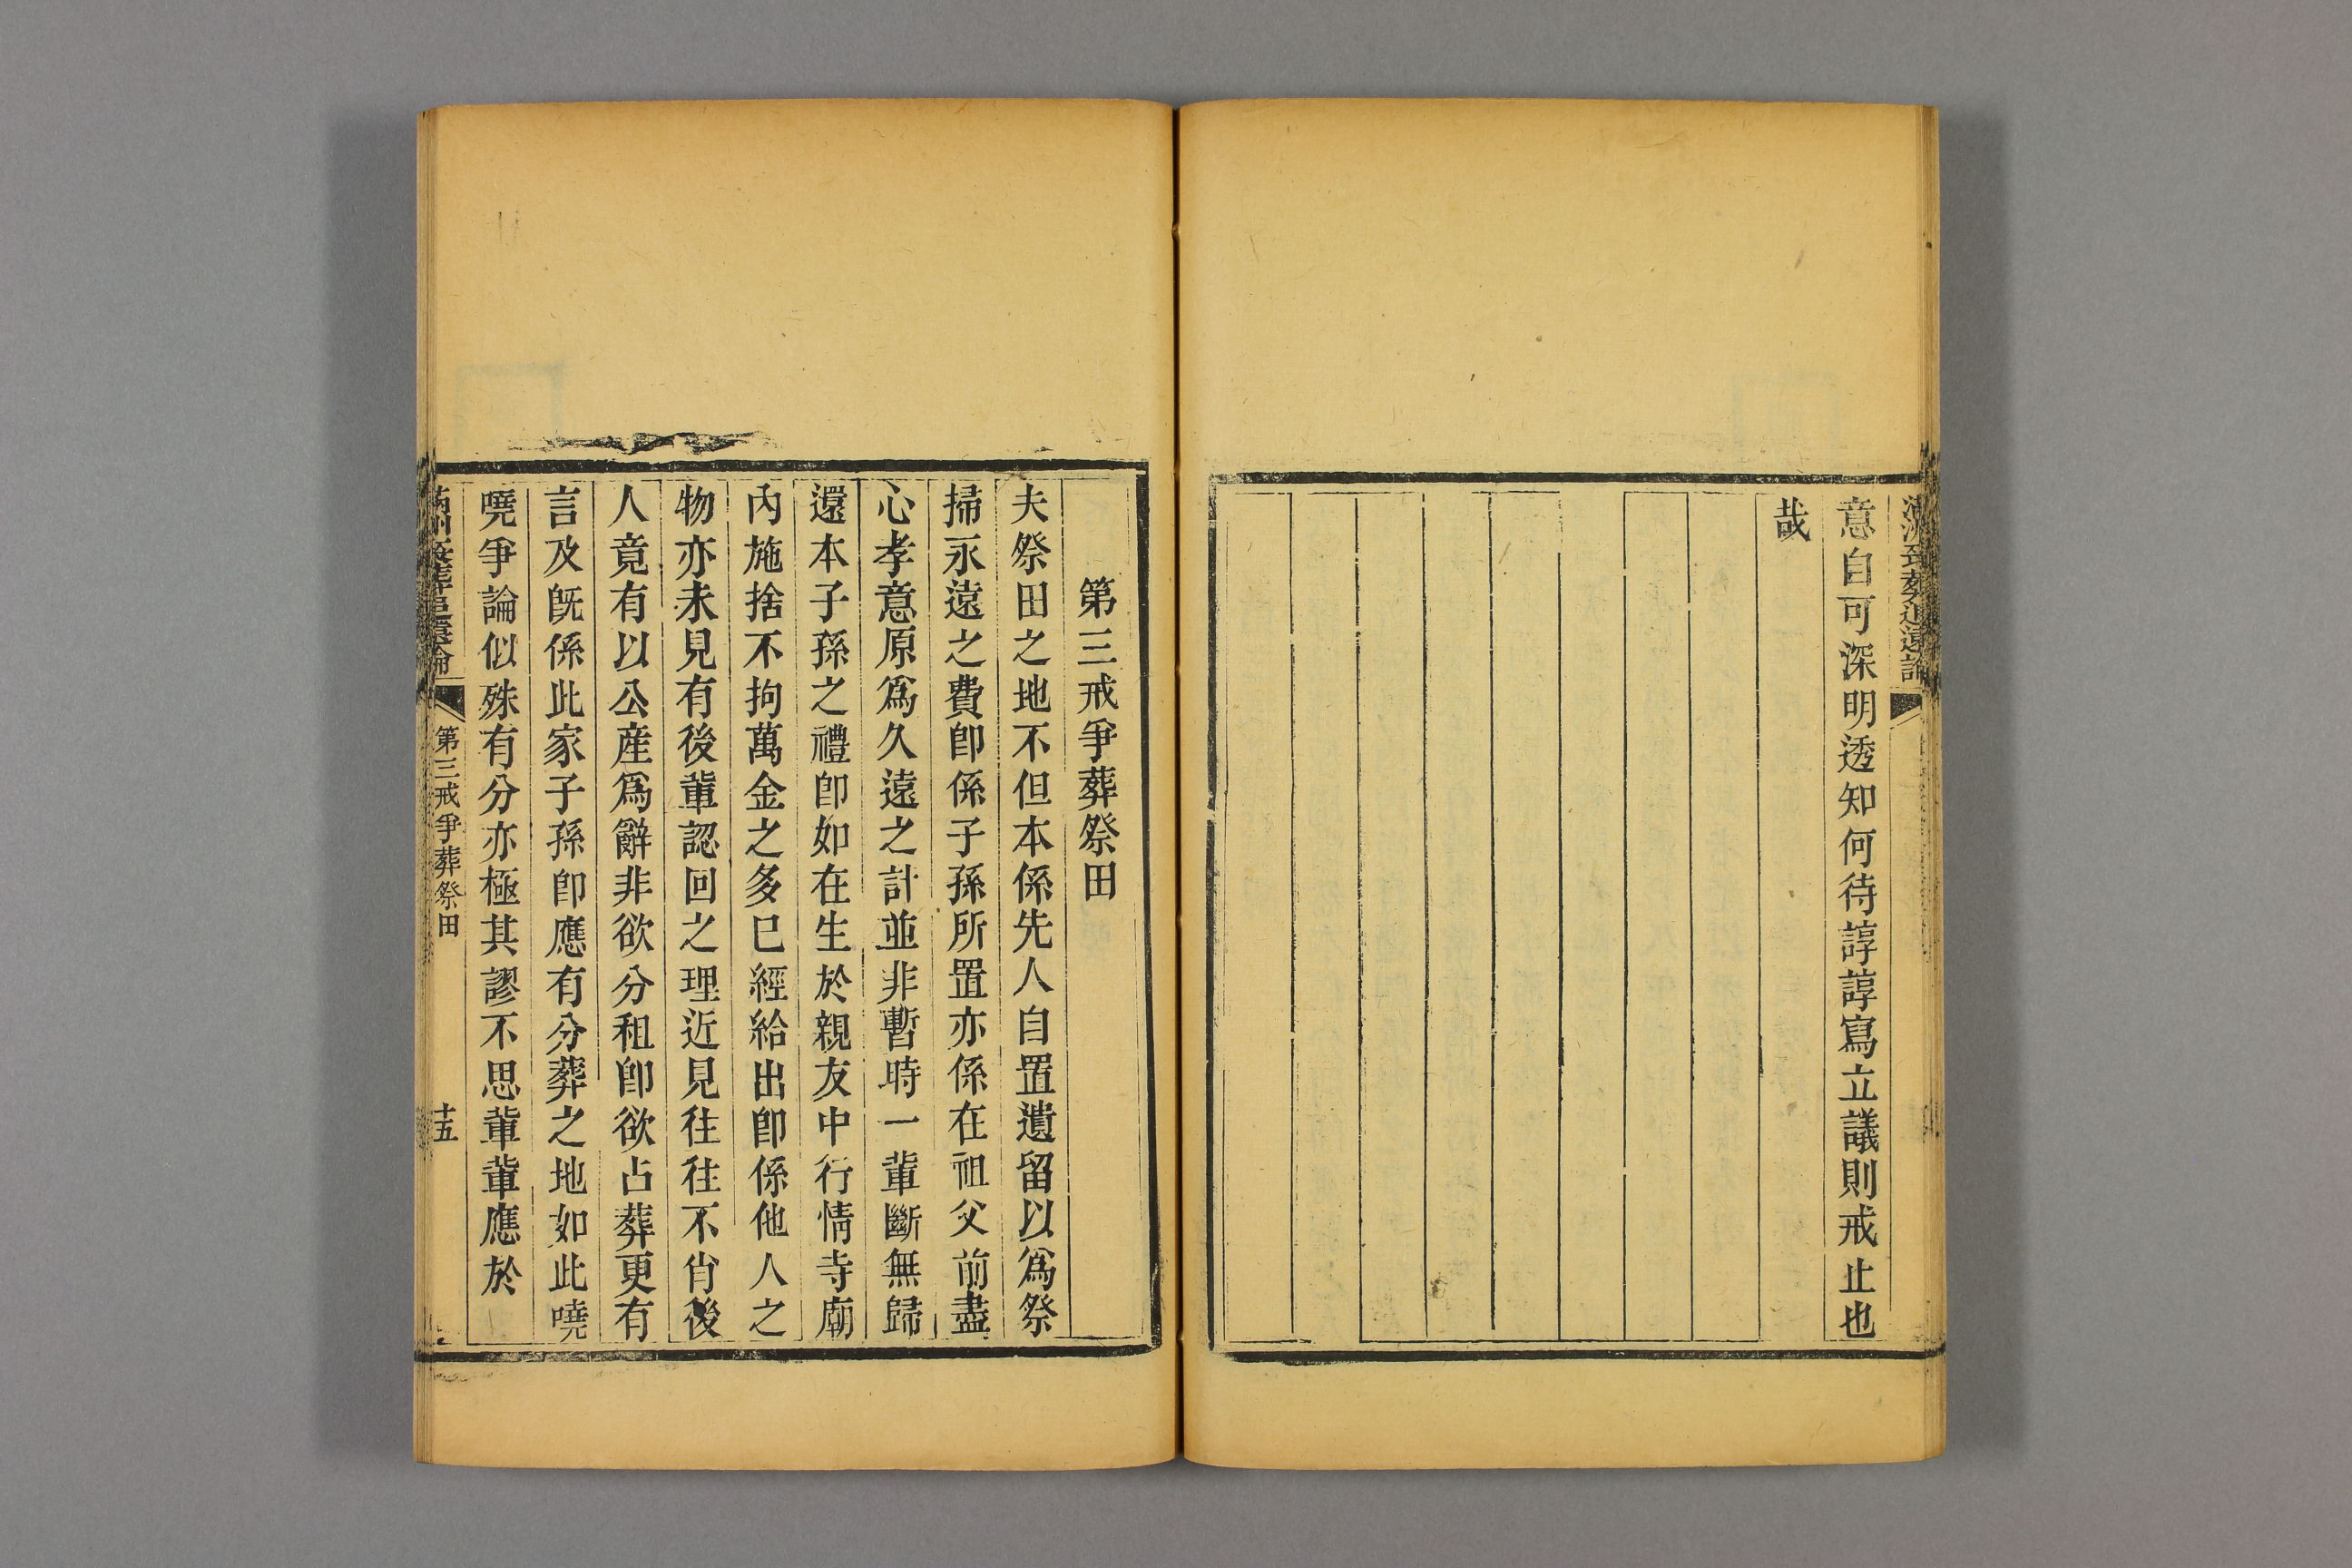 意自可深明透知何待諄諄寫立議則戒止也
哉
第三戒爭葬祭田
夫祭田之地不但本係先人自置遺留以爲祭
掃永遠之費卽係子孫所置亦係在祖父前盡
心孝意原爲久遠之計並非暫時一輩斷無歸
還本子孫之禮卽如在生於親友中行情寺廟
內施捨不拘萬金之多已經給出卽係他人之
物亦未見有後輩認回之理近見往往不肖後
人竟有以公産爲辭非欲分租卽欲占葬更有
言及旣係此家子孫卽應有分葬之地如此嘵
嘵爭論似殊有分亦極其謬不思輩輩應於
第三戒爭葬祭田
十五